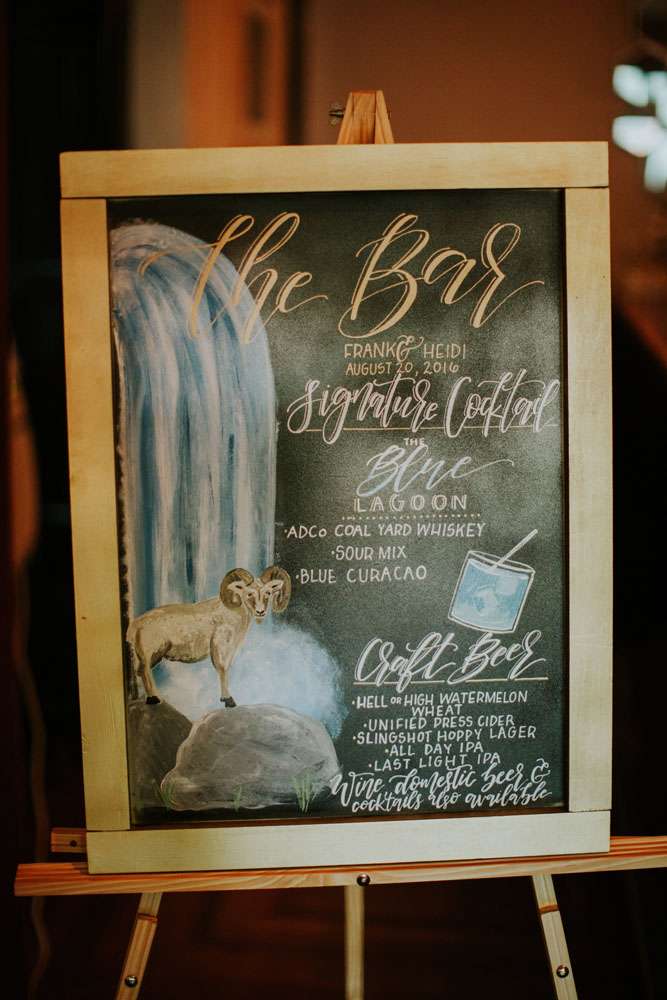 The Bar
FRANK & HEIDI
AUGUST 20, 2016
Signature Cocktail
THE
Blue
LAGOON
•ADCo COAL YARD WHISKEY
•SOUR MIX
•BLUE CURACAO
Craft Beer
•HELL OR HIGH WATERMELON
WHEAT
•UNIFIED PRESS CIDER
•SLINGSHOT HOPPY LAGER
•ALL DAY IPA
•LAST LIGHT IPA
Wine, domestic beer &
cocktails also available